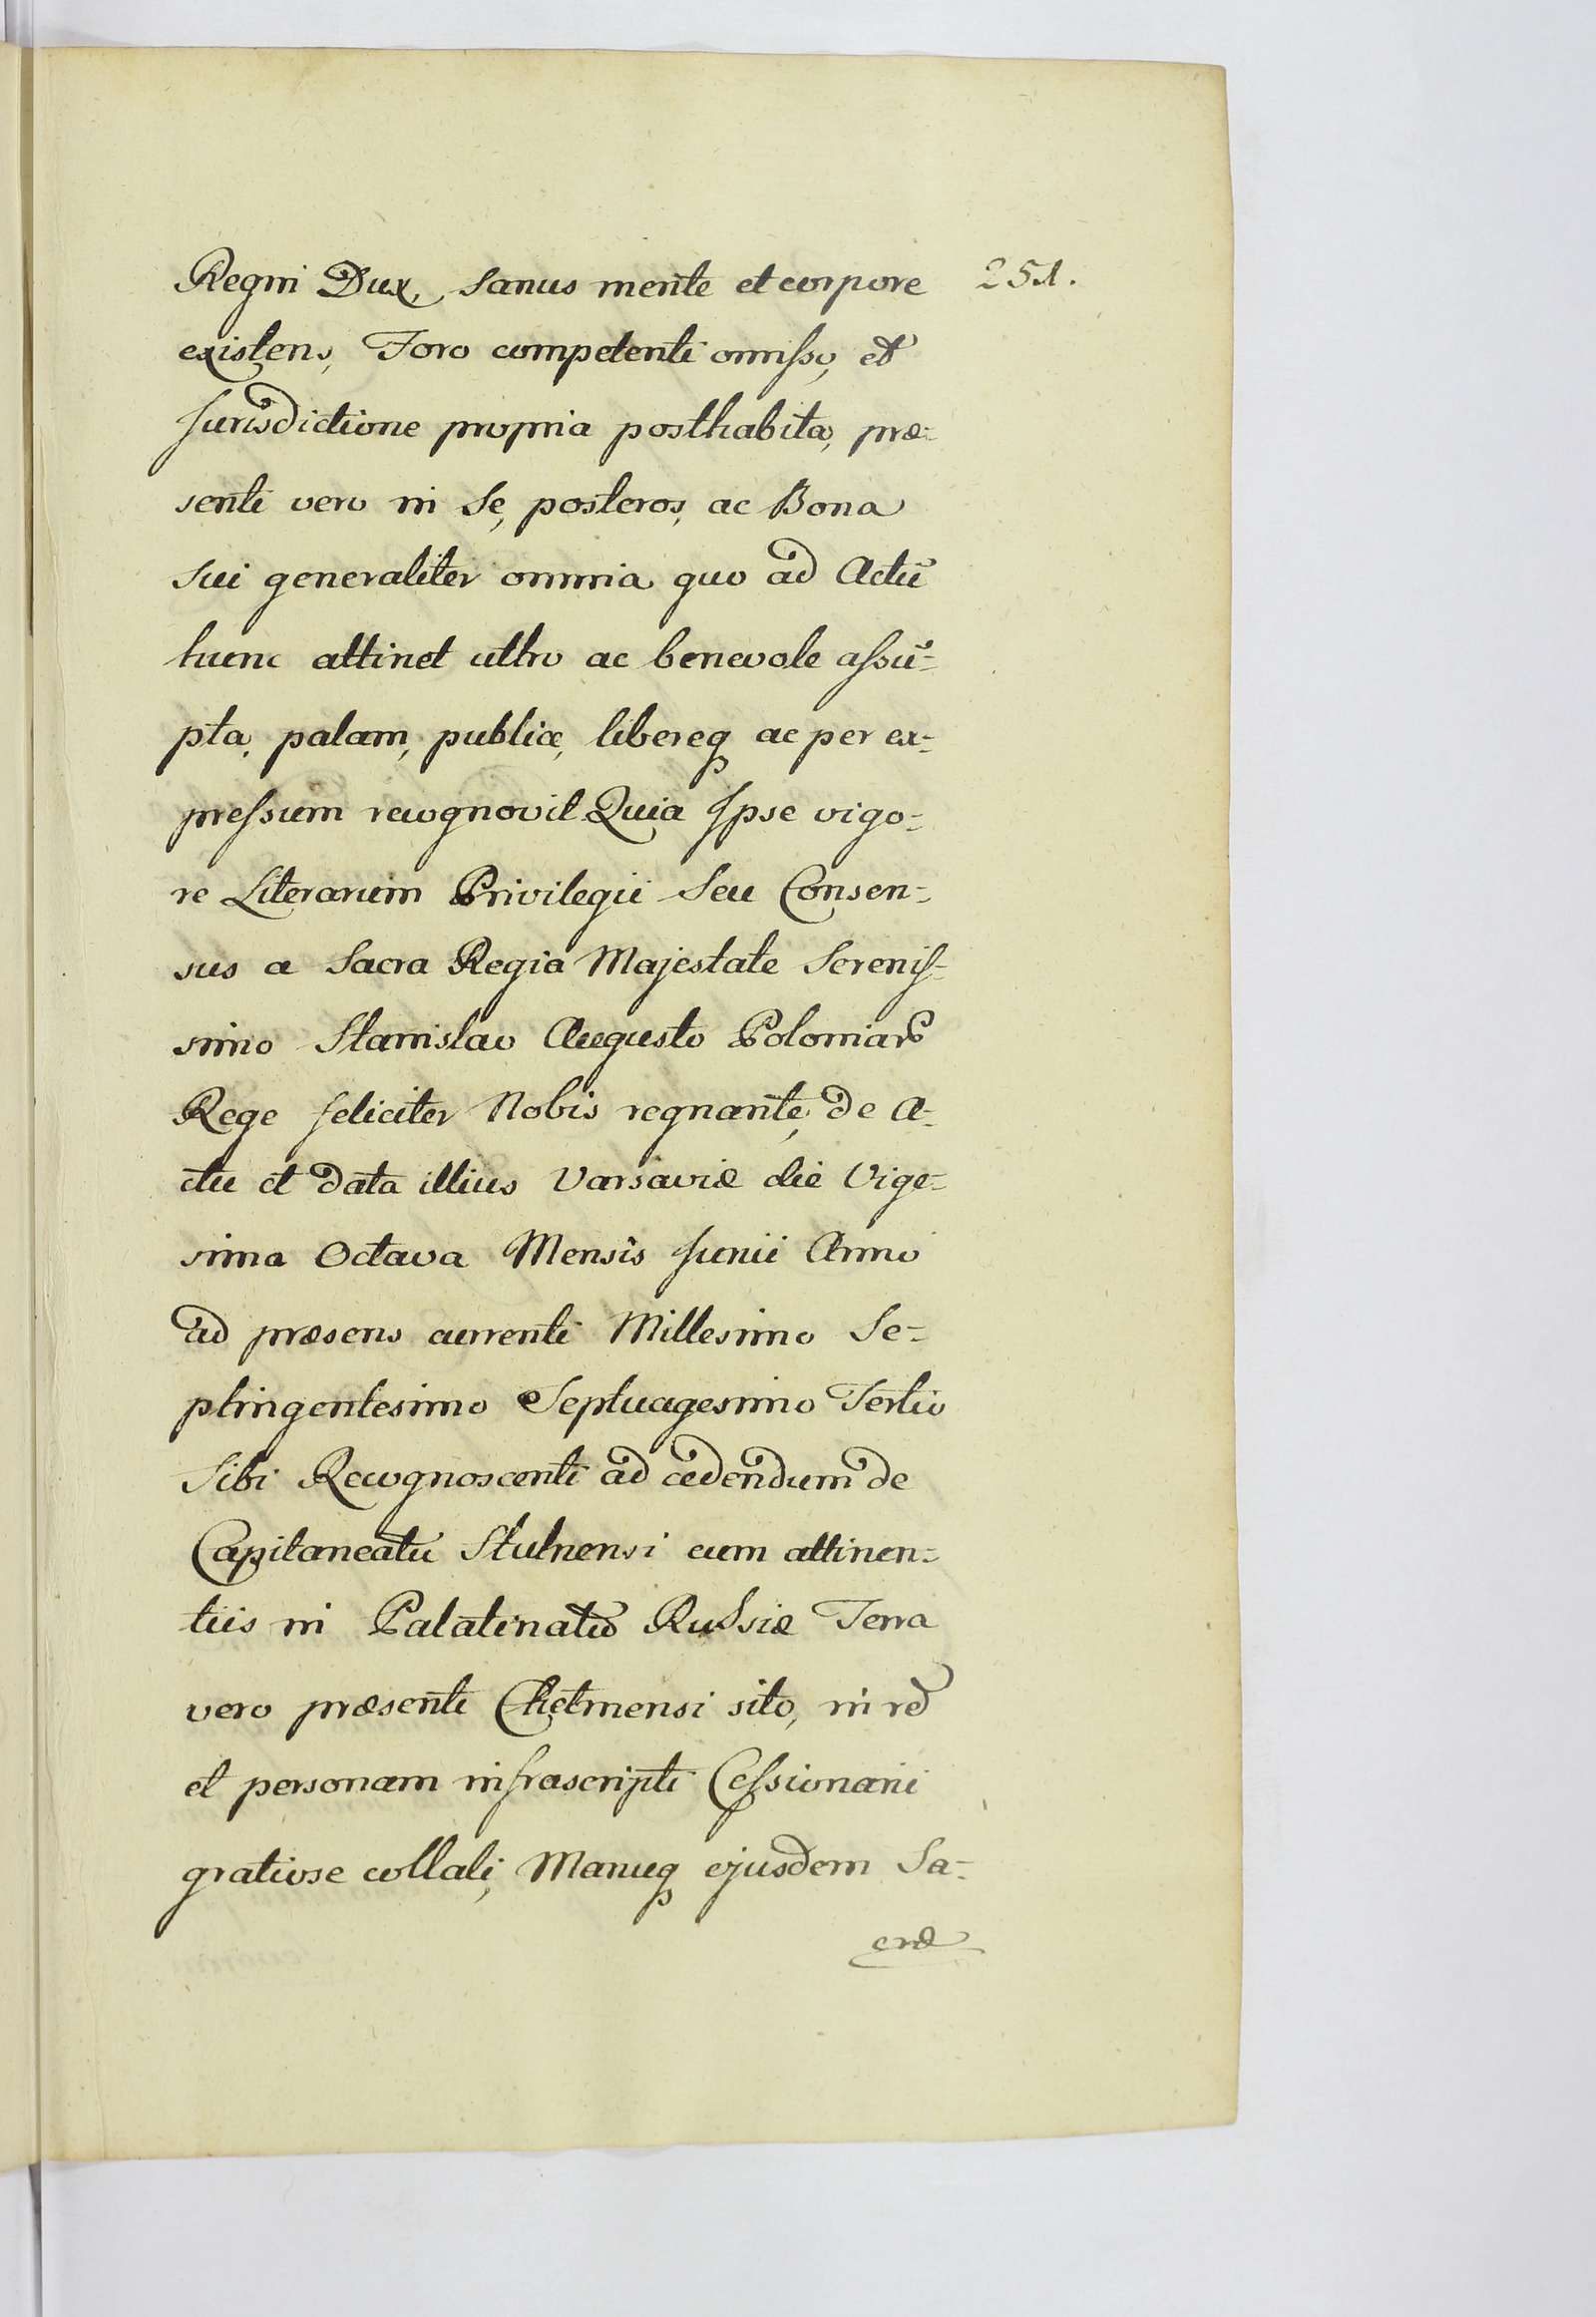 Regni Dux, sanus mente et corpore 251.
existens, Foro competenti omisso, et
Jurisdictione propria posthabita, præ=
senti vero in Se, posteros, ac Bona
sui generaliter omnia quo ad Actū
hunc attinet ultro ac benevole assū=
pta, palam, publice, libereq ac per ex=
pressum recognovit Quia Ipse vigo=
re Literarum Privilegii Seu Consen=
sus a Sacra Regia Majestate Serenis=
simo Stanislao Augusto Poloniar̄
Rege feliciter Nobis regnante, de A=
ctu et data illius Varsaviæ die Vige=
sima Octava Mensis Junii Anno
ad præsens currenti Millesimo Se=
ptingentesimo Septuagesimo Tertio
Sibi Recognoscenti ad cedendum de
Capitaneatu Stulnensi cum attinen=
tiis in Palatinatu Russiæ Terra
vero præsenti Chełmensi sito, in rē
et personam infrascripti Cessionarii
gratiose collati, Manuq ejusdem Sa=
cræ